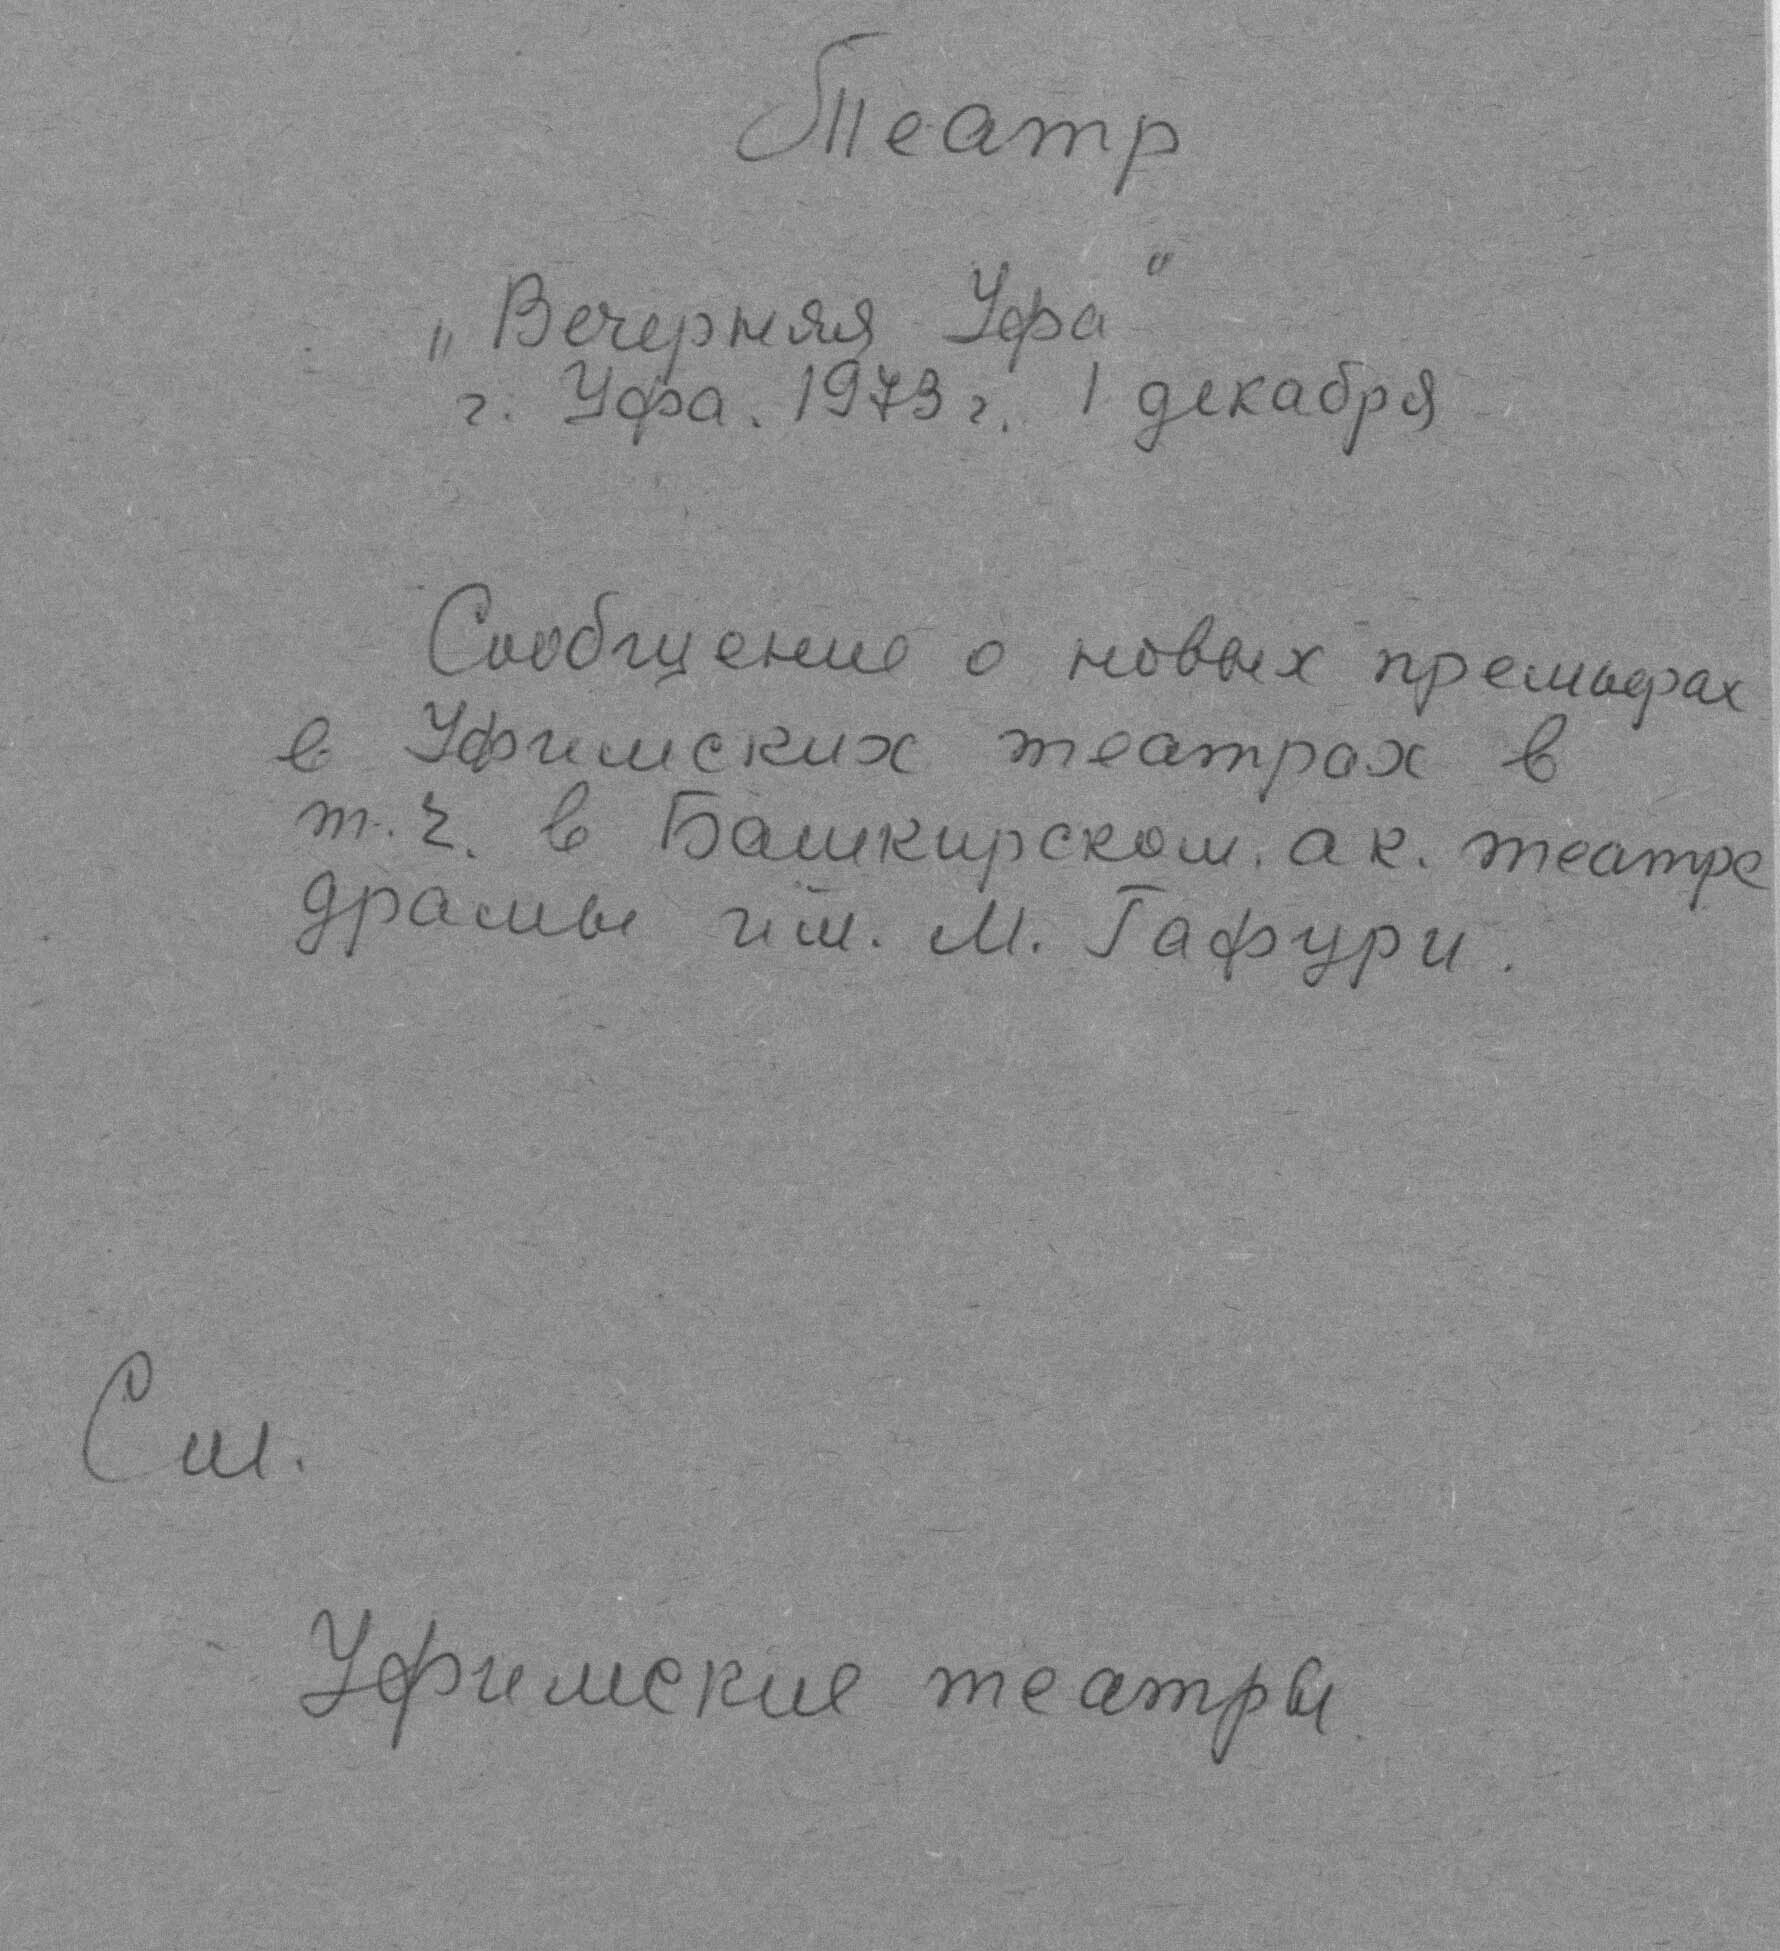 Театр
„Вечерняя Уфа"
г. Уфа. 1973 г. 1 декабря
Сообщение о новых премьерах
в Уфимских театрах в
т.ч. в Башкирском. ак. театре
драмы им. М. Гафури.
См.
Уфимские театры